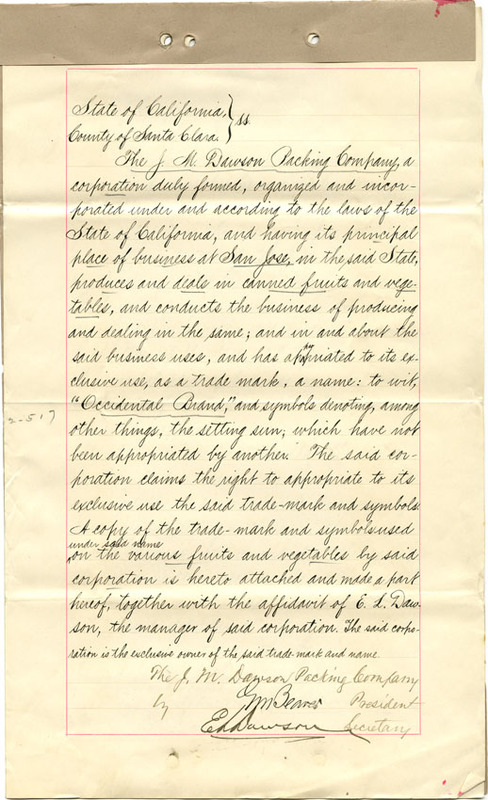 State of California, } ss.
County of Santa Clara. }
The J. M. Dawson Packing Company, a
corporation duly formed, organized and incor-
porated under and according to the laws of the
State of California, and having its principal
place of business at San Jose, in the said State,
produces and deals in canned fruits and vege-
tables, and conducts the business of producing
and dealing in the same; and in and about the
said business uses, and has appropriated to its ex-
clusive use, as a trade mark, a name: to wit,
"Occidental Brand," and symbols denoting, among
other things, the setting sun; which have not
been appropriated by another. The said cor-
poration claims the right to appropriate to its
exclusive use the said trade-mark and symbols.
A copy of the trade-mark and symbols used
under said name
on the various fruits and vegetables by said
corporation is hereto attached and made a part
hereof, together with the affidavit of E. L. Daw-
son, the manager of said corporation. The said corpo-
ration is the exclusive owner of the said trade mark and name.
The J. M. Dawson Packing Company
by Beaver President
E L Dawson Secretary
2-517